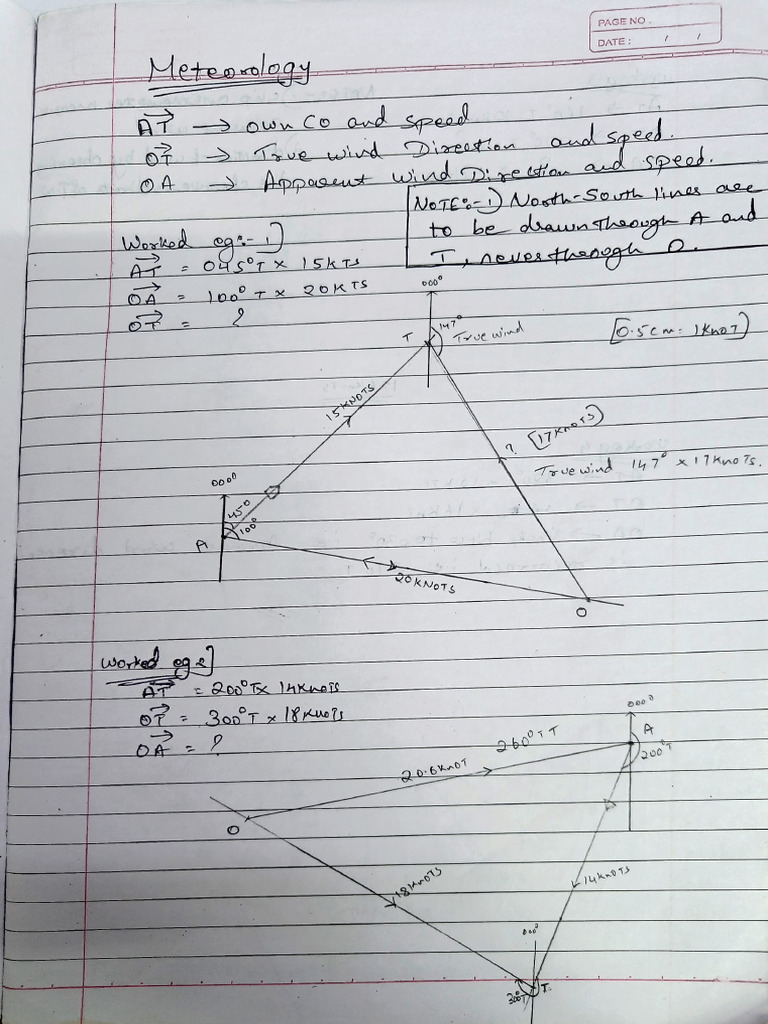 PAGE NO.
DATE: / /
Meteorology
AT → own Co and speed
OT → True wind Direction and speed.
OA → Apparent wind Direction and speed.
NOTE:- 1) North-South lines are
to be drawn through A and
T, never through O.
Worked eg:- 1]
AT = 045°T x 15KTS
OA = 100°T x 20KTS
OT = ?
000°
T
147°
True wind
[0.5cm: 1KNOT]
15KNOTS
? [17KNOTS]
True wind 147° x 17KNOTS.
0000°
450
100°
A
20KNOTS
O
Worked eg 2]
AT = 200°T x 14KNOTS
OT = 300°T x 18KNOTS
OA = ?
000°
A
200°T
260°TT
20.6KNOT
O
18KNOTS
14KNOTS
000°
T.
300°T